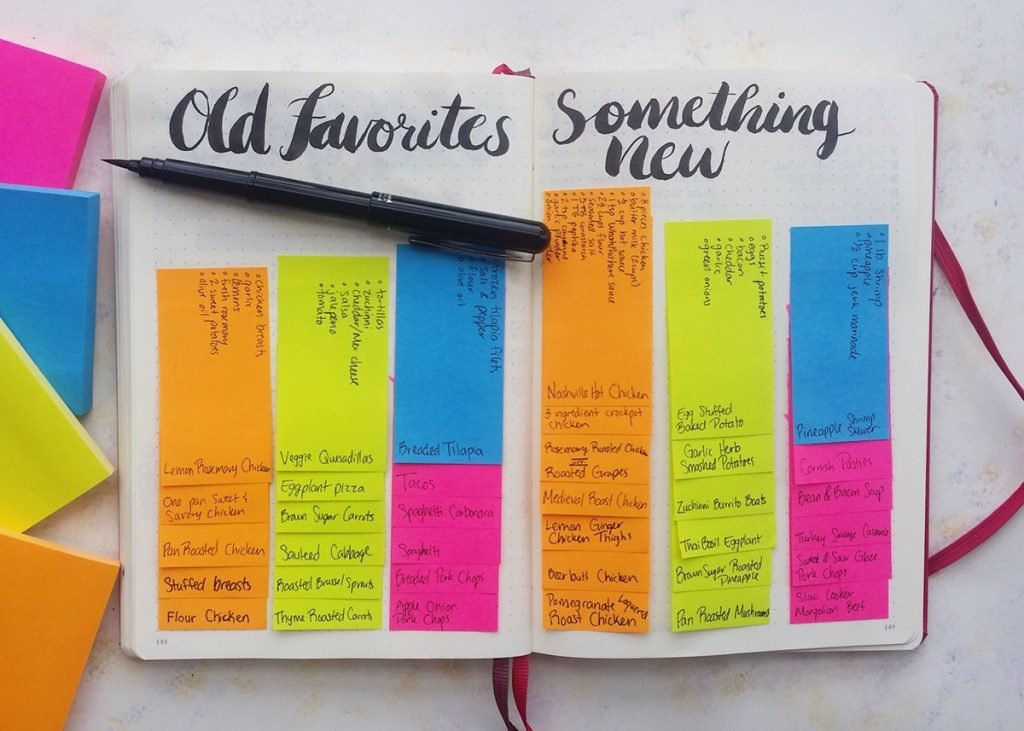 Old Favorites
chicken breasts
garlic
lemons
fresh rosemary
2 sweet potatoes
olive oil
Lemon Rosemary Chicken
One pan Sweet &
Savory Chicken
Pan Roasted Chicken
Stuffed breasts
Flour Chicken
tortillas
zuchinni
cheddar/Mex cheese
salsa
jalepeno
tomato
Veggie Quesadillas
Eggplant pizza
Braun Sugar Carrots
Sauteed Cabbage
Roasted Brussel Sprouts
Thyme Roasted Carrots
frozen tilapia filets
salt & pepper
flour
olive oil
Breaded Tilapia
Tacos
Spaghetti Carbonara
Spaghetti
Breaded Pork Chops
Apple Onion
Pork Chops
148
Something
New
8 pieces chicken
butter milk (2 cups)
1/2 cup hot sauce
1 tsp
2 1/2 cups flour
seasoned salt
3 TB cornstarch
1 TB paprika
2 tsp cayenne
garlic powder
onion
Nashville Hot Chicken
3 ingredient crockpot
chicken
Rosemary Roasted Chicken
Roasted Grapes
Medieval Roast Chicken
Lemon Ginger
Chicken Thighs
Beer butt Chicken
Pomegranate Laquered
Roast Chicken
Russet potatoes
eggs
bacon
cheddar
garlic
green onions
Egg Stuffed
Baked Potato
Garlic Herb
Smashed Potatoes
Zuchinni Burrito Boats
Thai Basil Eggplant
Brown Sugar Roasted
Pineapple
Pan Roasted Mushrooms
1 lb shrimp
pineapple
1/2 cup jerk marinade
Pineapple Shrimp
Skewer
Cornish Pasties
Bean & Bacon Soup
Turkey Sausage Casserole
Sweet & Sour Glaze
Pork Chops
Slow Cooker
Mongolian Beef
149